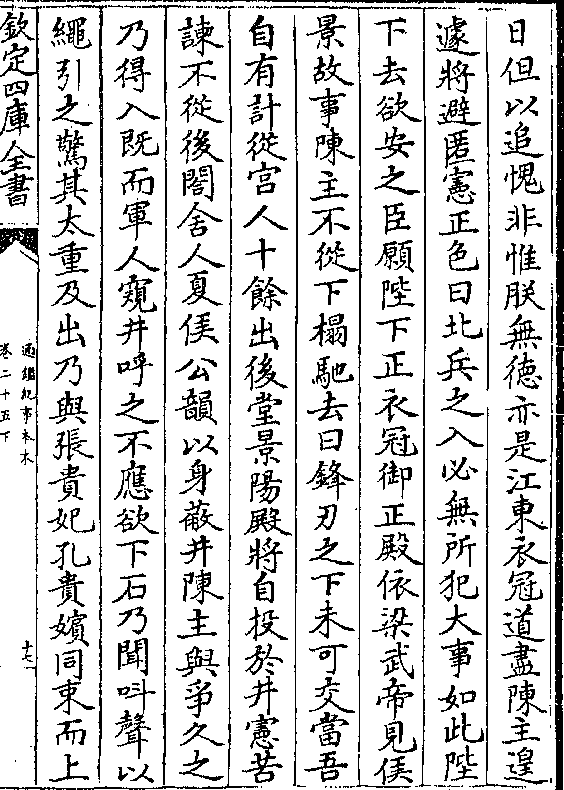 日但以追愧非惟朕無徳亦是江東衣冠道盡陳主遑
遽將避匿憲正色曰北兵之入必無所犯大事如此陛
下去欲安之臣願陛下正衣冠御正殿依梁武帝見侯
景故事陳主不從下榻馳去曰鋒刃之下未可交當吾
自有計從宫人十餘出後堂景陽殿將自投於井憲苦
諫不從後閤舍人夏侯公韻以身蔽井陳主與爭久之
乃得入既而軍人窺井呼之不應欲下石乃聞呌聲以
繩引之驚其太重及出乃與張貴妃孔貴嬪同束而上
欽定四庫全書
通鑑紀事本末
卷二十五下
十七